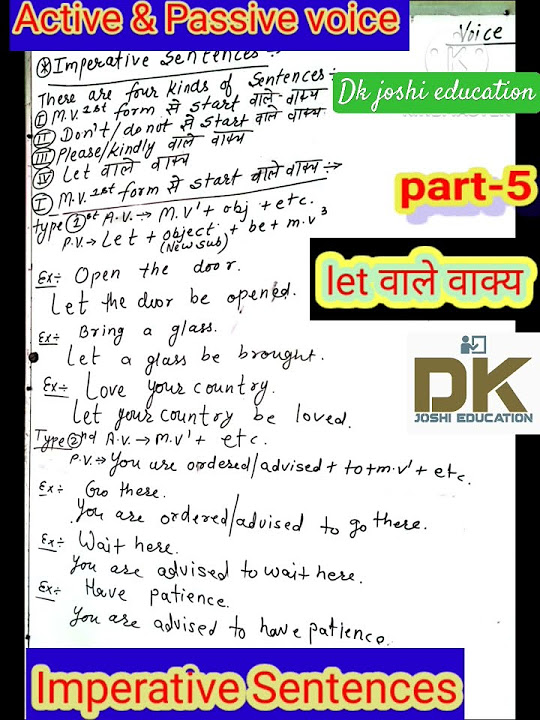 Active & Passive voice
Voice
Imperative Sentences :-
Dk joshi education
There are four kinds of Sentences :-
I M.V. 1st form से start वाले वाक्य
II Don't/do not से start वाले वाक्य
III Please/kindly वाले वाक्य
IV Let वाले वाक्य
I M.V. 1st form से start वाले वाक्य :→
part-5
type 1st A.V. → M.V¹ + obj + etc.
P.V. → Let + object + be + m.v³
(New sub)
let वाले वाक्य
Ex÷ Open the door.
Let the door be opened.
Ex÷ Bring a glass.
Let a glass be brought.
Ex÷ Love your country.
Let your country be loved.
DK
JOSHI EDUCATION
Type 2nd A.V. → M.V¹ + etc.
P.V. → You are ordered/advised + to + m.v¹ + etc.
Ex÷ Go there.
You are ordered/advised to go there.
Ex÷ Wait here.
You are advised to wait here.
Ex÷ Have patience.
You are advised to have patience.
Imperative Sentences